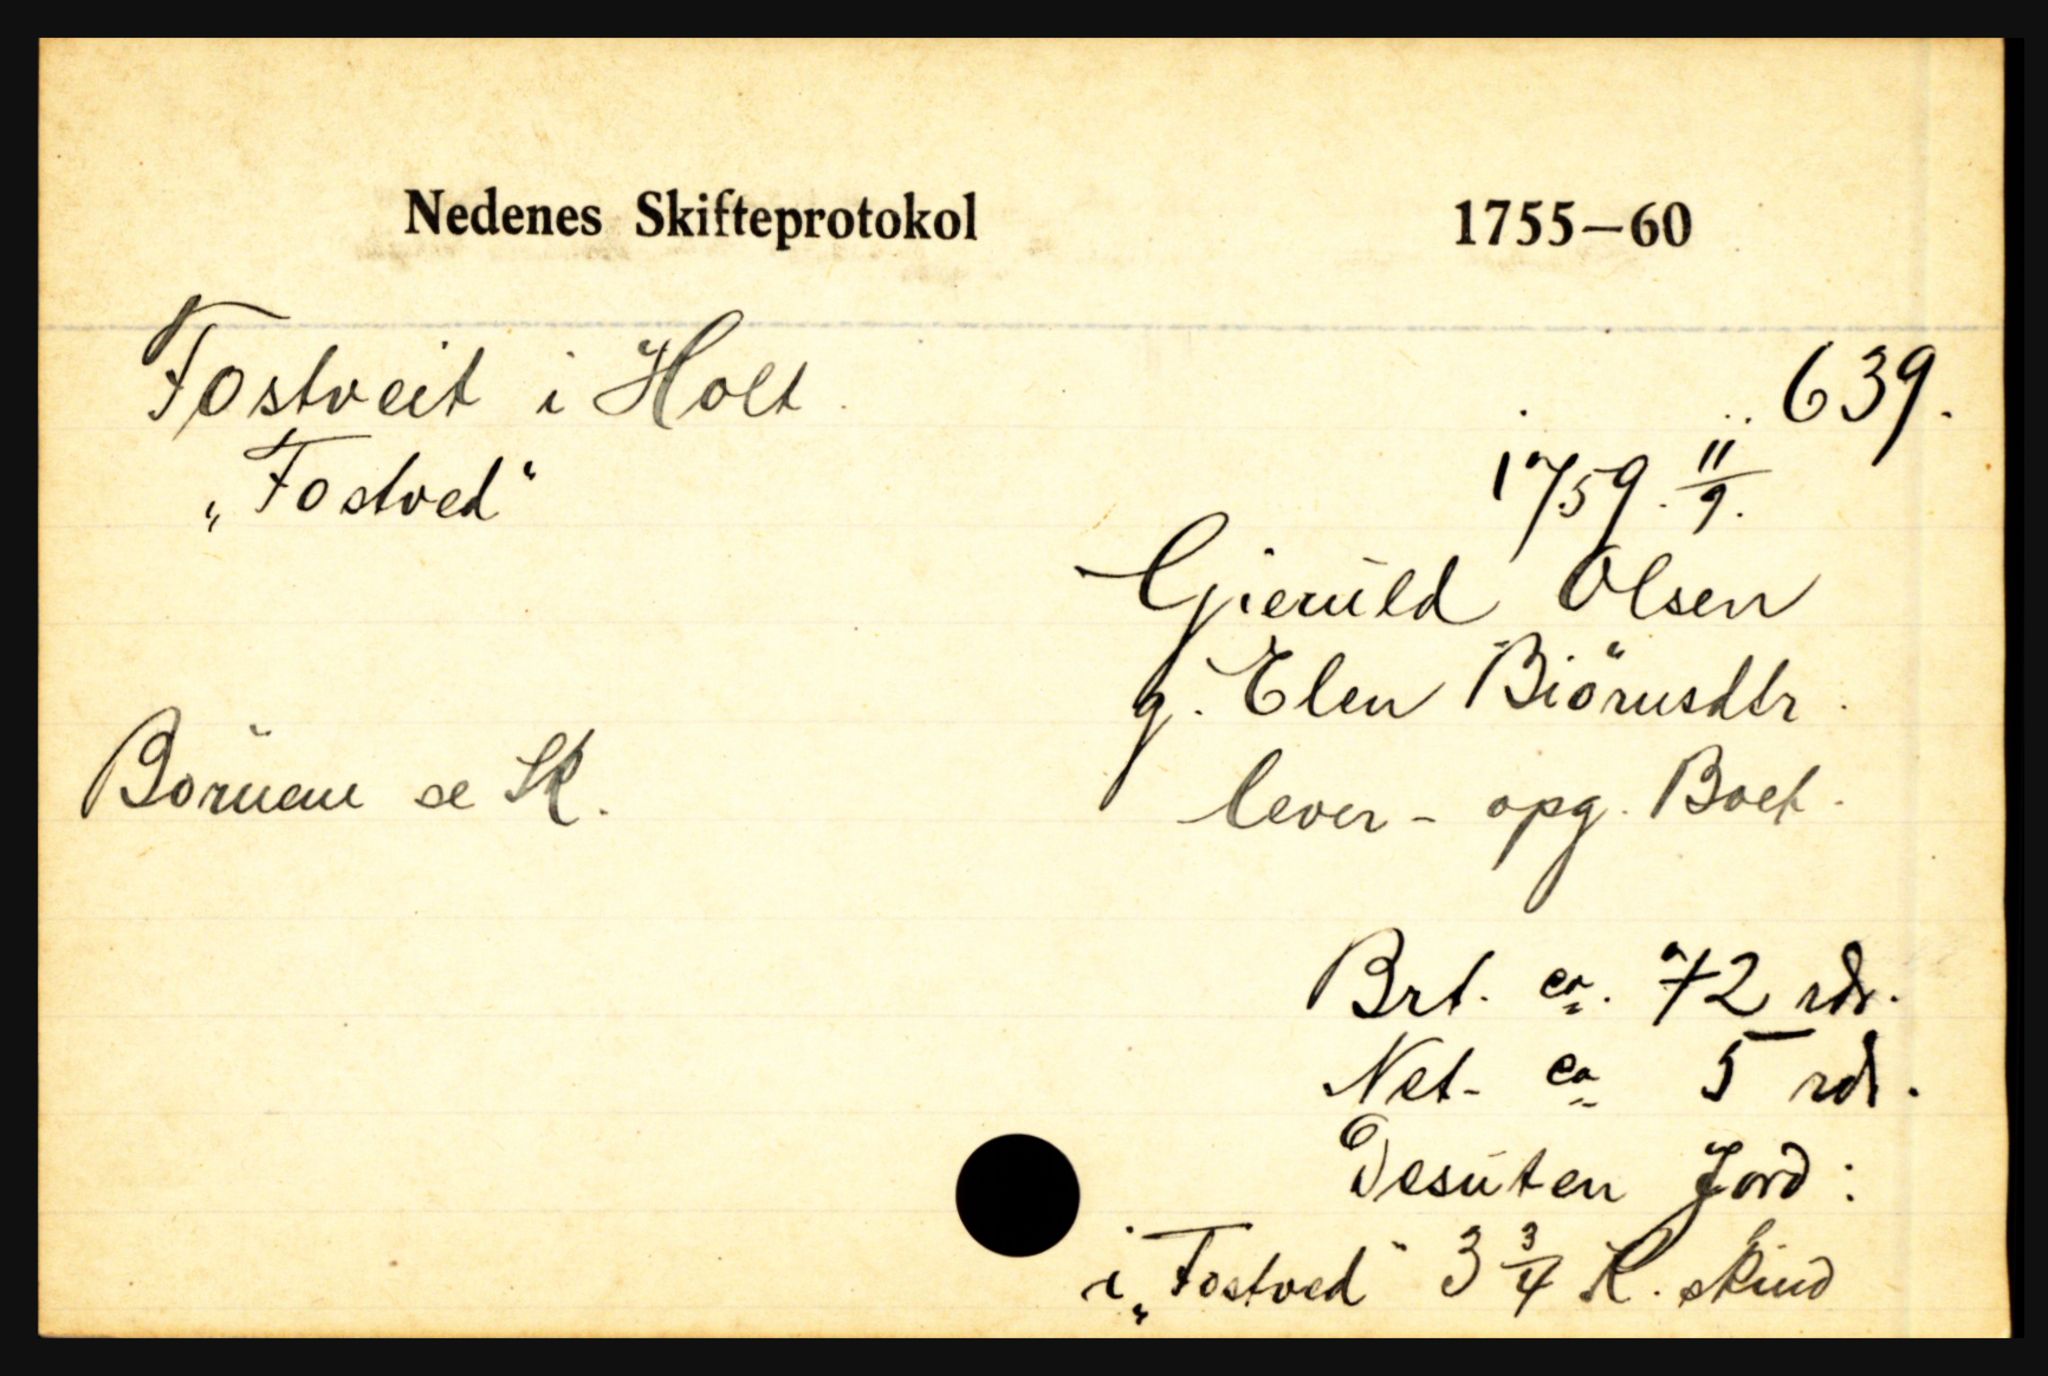 Nedenes Skifteprotokol 1755—60
Fostveit i Holt 639.
„Fostved“
1759. 11/9.
Gjeruld Olsen
g. Elen Biörnsdtr.
Börnene se Sk. lever - opg. Boet.
Brt. ca. 72 rdr.
Net- ca 5 rdr.
Desuten Jord:
i „Fostved“ 3 3/4 K. skind